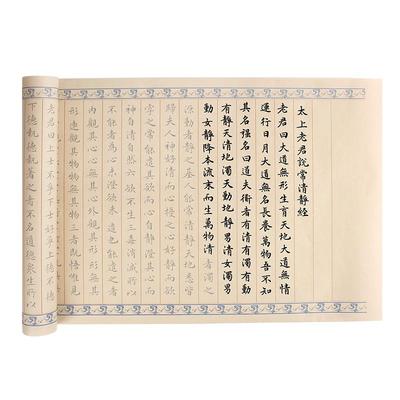 太上老君說常清靜經
老君曰大道無形生育天地大道無情
運行日月大道無名長養萬物吾不知
其名强名曰道夫衜者有清有濁有動
有靜天清地濁天動地靜男清女濁男
動女靜降本流末而生萬物清者濁之
源動者靜之基人能常清靜天地悉皆
歸夫人神好清而心擾之人心好靜而欲
牽之常能遣其欲而心自靜澄其心而
神自清自然六欲不生三毒消滅所以
不能者為心未澄欲未遣也能遣之者
內觀其心心無其心外觀其形形無其
形遠觀其物物無其物三者既悟唯見
老君曰上士不爭下士好爭上德不德
下德執德執著之者不名道德眾生所以